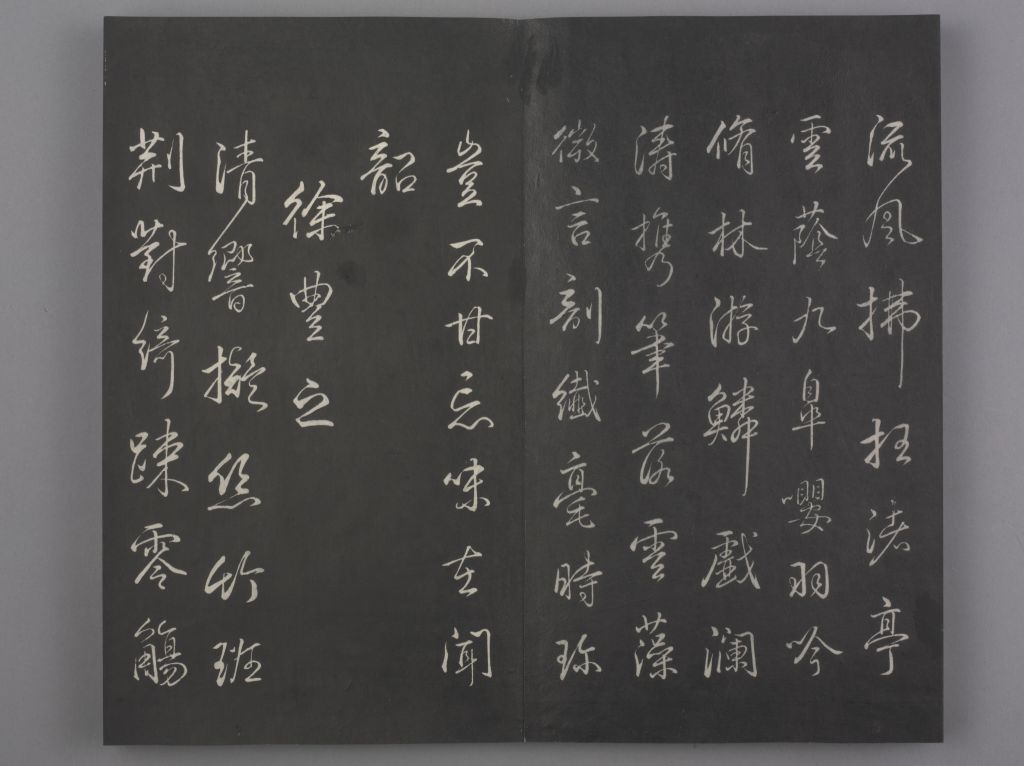 流風拂枉渚亭
雲蔭九皐嚶羽吟
脩林游鱗戲瀾
濤携筆落雲藻
微言剖纖毫時珎
豈不甘忘味在聞
韶
徐豐之
清響擬丝竹班
荆對綺踈零觴